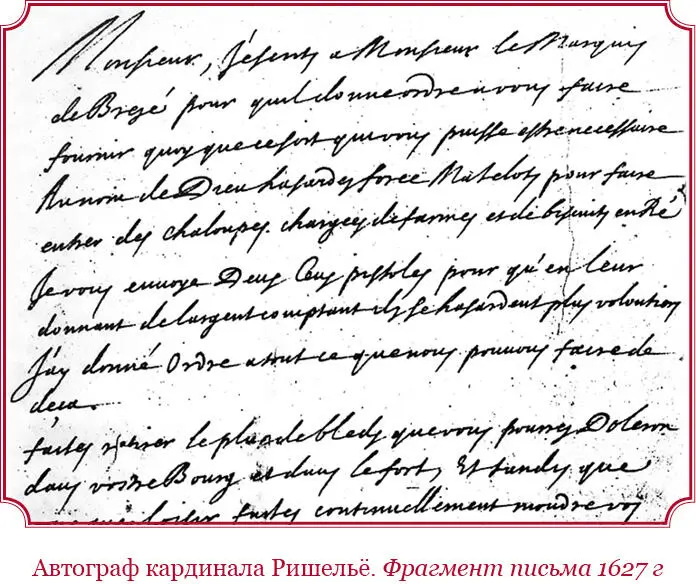 Monsieur, J'escrits a Monsieur le Marquis
de Brezé pour quil donne ordre a vous faire
fournir quoy que ce soit qui vous puisse estre necessaire
Au nom de Dieu hasardes force Matelots pour faire
entrer des chaloupes chargees de farines et de biscuits en Ré
Je vous envoye Deux Cens pistoles pour qu'en leur
donnant de largent comptant ils se hasardent plus volontiers
J'ay donné Ordre a tout ce que nous pouvons faire de
deca.
faites retirer le plus de bleds que vous pourres Doleron
dans vostre Bourg et dans le fort, Et tandis que
loisir faites continuellement moudre vos
Автограф кардинала Ришельё. Фрагмент письма 1627 г